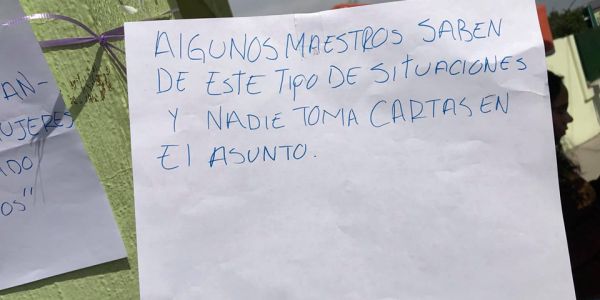 AN-
UJERES
ADO
OS"
AlGUNOS MAESTROS SABEN
DE ESTE TIPO DE SITUACIONES
Y NADIE TOMA CARTAS EN
El ASUNTO.